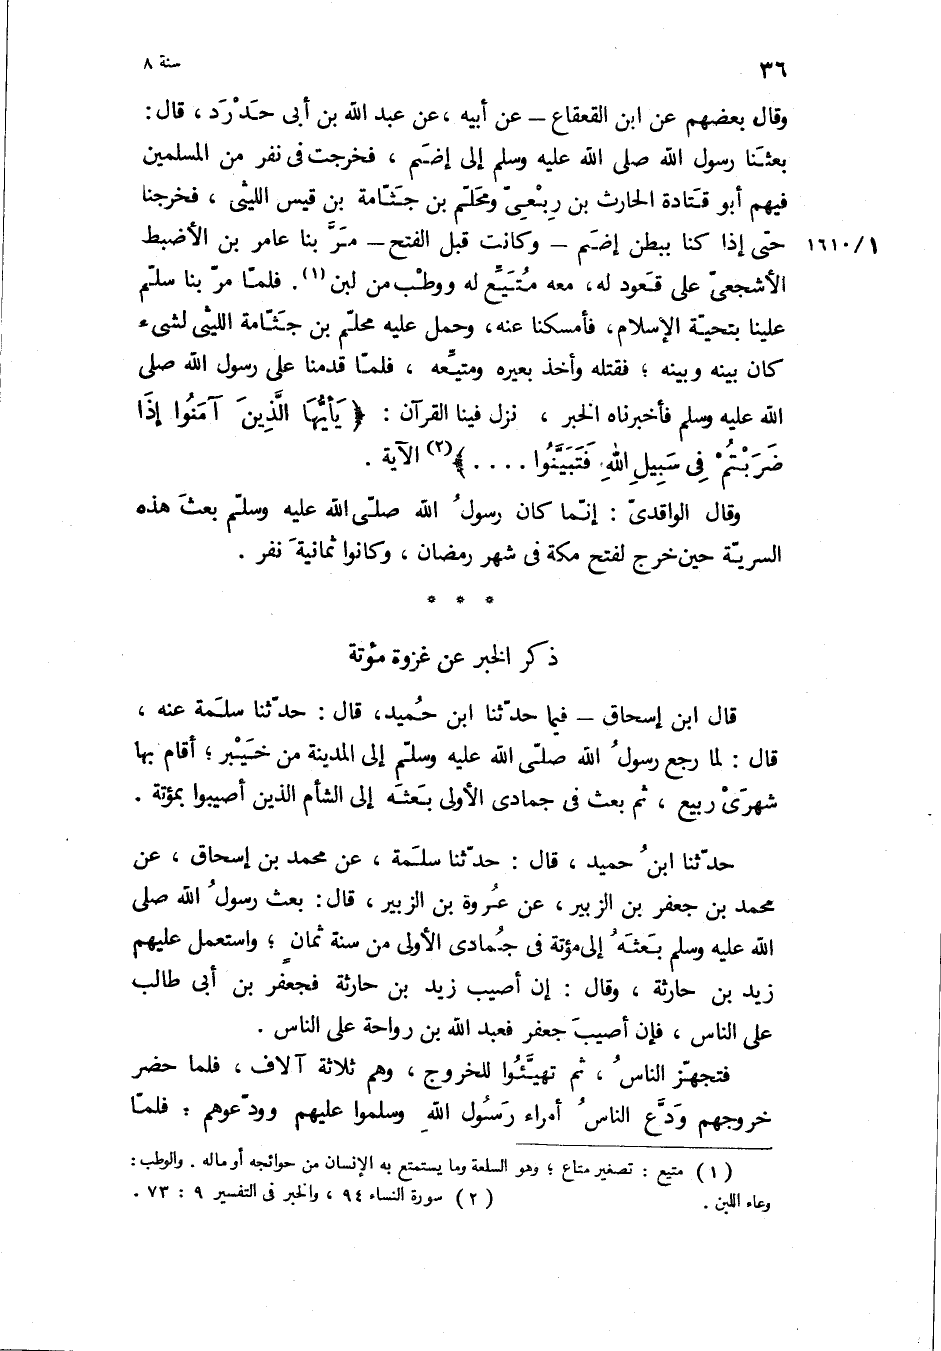 ٣٦ سنة ٨
وقال بعضهم عن ابن القعقاع – عن أبيه ، عن عبد الله بن أبى حَدْرَد ، قال :
بعثَنا رسول الله صلى الله عليه وسلم إلى إضَم ، فخرجت فى نفر من المسلمين
فيهم أبو قَتادة الحارث بن رِبْعىّ ومحَلّم بن جَثّامة بن قيس الليثى ، فخرجنا
١٦١٠/١ حتى إذا كنا ببطن إضَم – وكانت قبل الفتح – مَرَّ بنا عامر بن الأضبط
الأشجعىّ على قَعود له، معه مُتَيِّع له ووطْب من لبن (١). فلمّا مرّ بنا سلّم
علينا بتحيّة الإسلام، فأمسكنا عنه، وحمل عليه محلّم بن جَثّامة الليثى لشىء
كان بينه وبينه ؛ فقتله وأخذ بعيره ومتيِّعه ، فلمّا قدمنا على رسول الله صلى
الله عليه وسلم فأخبرناه الخبر ، نزل فينا القرآن : ﴿ يَأَيُّهَا الَّذِينَ آمَنُوا إِذَا
ضَرَبْتُمْ فِى سَبِيلِ اللهِ فَتَبَيَّنُوا . . . . ﴾(٢) الآية .
وقال الواقدىّ : إنّما كان رسولُ الله صلّى الله عليه وسلّم بعثَ هذه
السريّة حين خرج لفتح مكة فى شهر رمضان ، وكانوا ثمانيةَ نفر .
* * *
ذكر الخبر عن غزوة مؤتة
قال ابن إسحاق – فيما حدّثنا ابن حُميد، قال : حدّثنا سلَمة عنه ،
قال : لما رجع رسولُ الله صلّى الله عليه وسلّم إلى المدينة من خَيْبر ؛ أقام بها
شهرَىْ ربيع ، ثم بعث فى جمادى الأولى بَعثَه إلى الشأم الذين أصيبوا بمؤتة .
حدّثنا ابنُ حميد ، قال : حدّثنا سلَمة ، عن محمد بن إسحاق ، عن
محمد بن جعفر بن الزبير ، عن عُروة بن الزبير ، قال : بعث رسولُ الله صلى
الله عليه وسلم بَعثَهُ إلى مؤتة فى جُمادى الأولى من سنة ثمانٍ ؛ واستعمل عليهم
زيد بن حارثة ، وقال : إن أصيب زيد بن حارثة فجعفر بن أبى طالب
على الناس ، فإن أصيبَ جعفر فعبد الله بن رواحة على الناس .
فتجهّز الناسُ ، ثم تهيَّئُوا للخروج ، وهم ثلاثة آلاف ، فلما حضر
خروجهم وَدَّع الناسُ أمراء رَسُول اللهِ وسلموا عليهم وودّعوهم ؛ فلمّا
( ١ ) متيع : تصغير متاع ؛ وهو السلعة وما يستمتع به الإنسان من حوائجه أو ماله . والوطب :
وعاء اللبن . ( ٢ ) سورة النساء ٩٤ ، والخبر فى التفسير ٩ : ٧٣ .